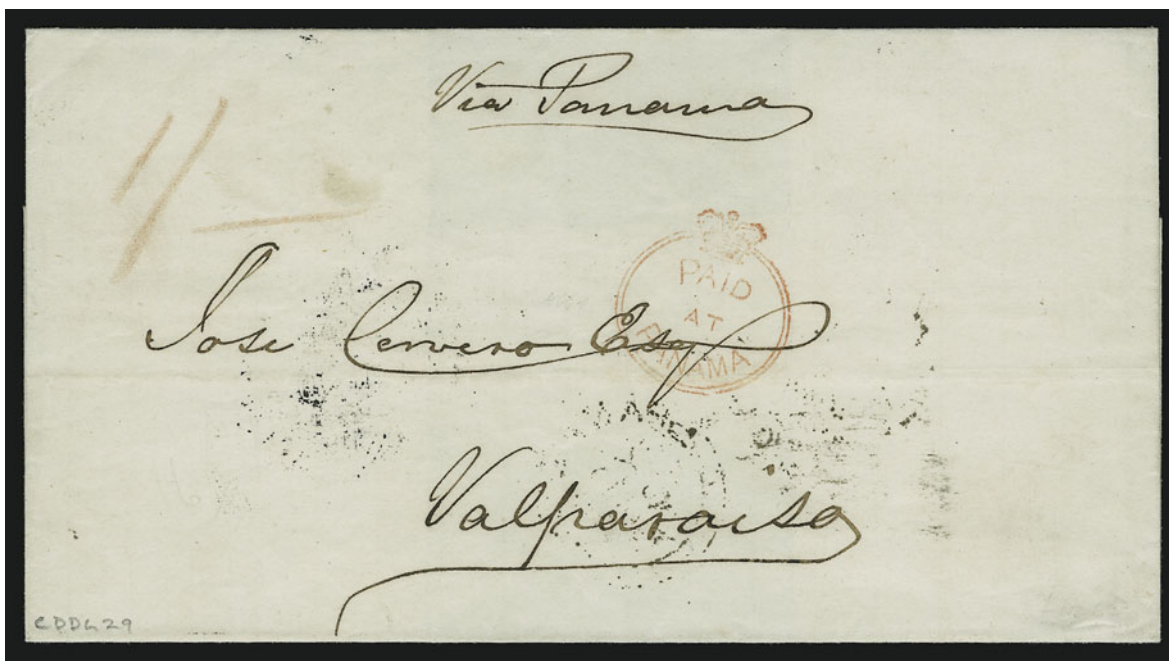 Via Panama
1/
PAID
AT
PANAMA
Jose Cervero Esq
Valparaiso
CDDG29